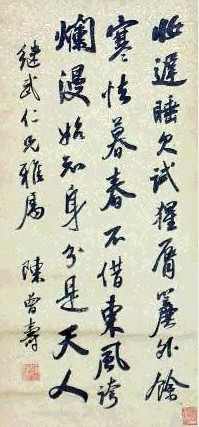 妝遲睡欠試猩脣簾外餘
寒怯暮春不借東風誇
爛漫始知身分是天人
继武仁兄雅属 陳曾壽